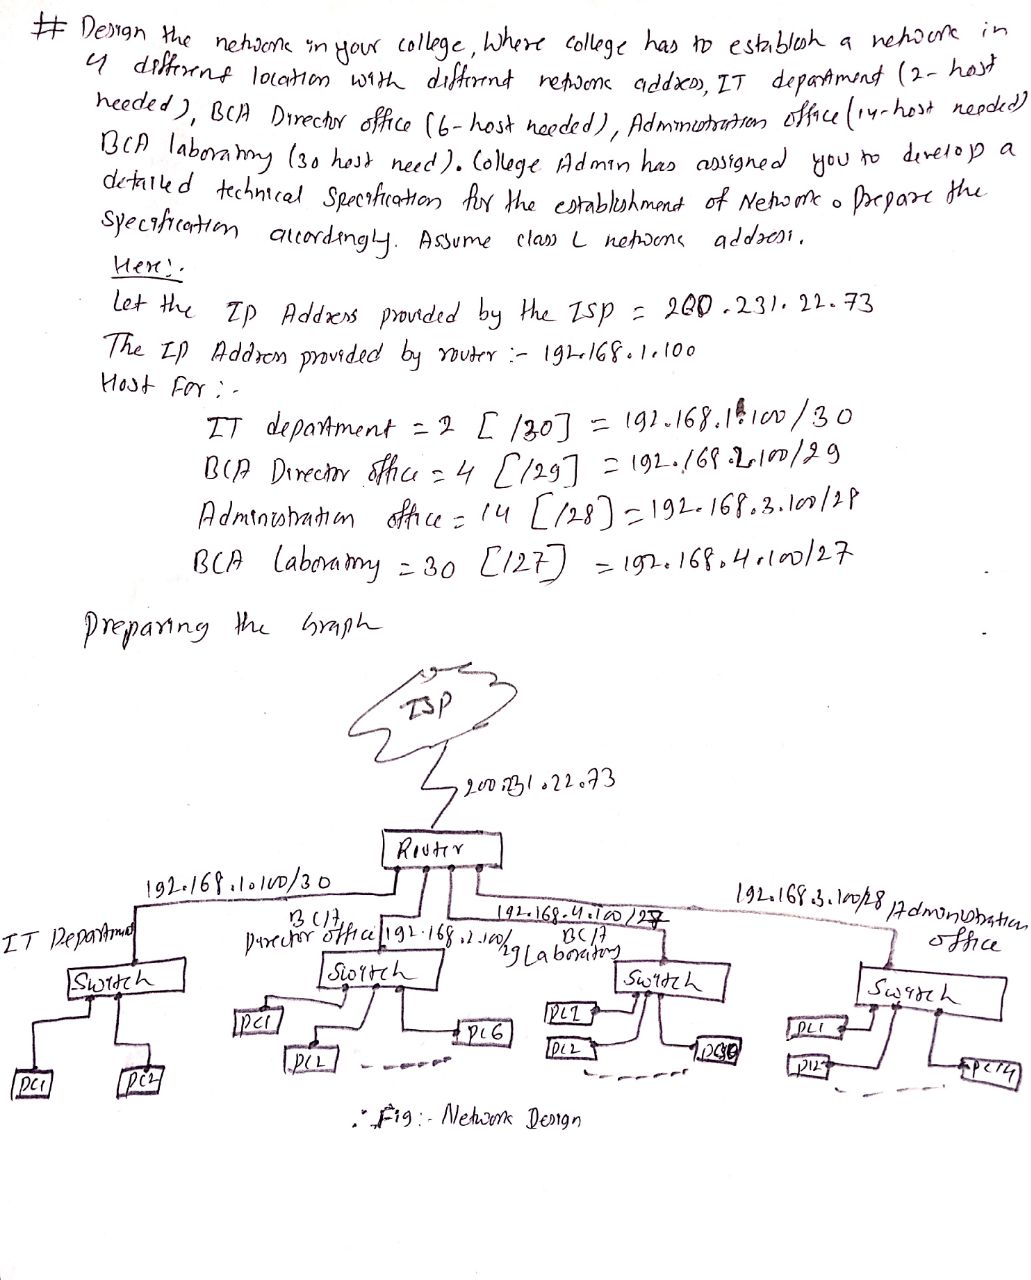 # Design the network in your college, Where college has to establish a network in
4 different location with different network address, IT department (2-host
needed), BCA Director office (6-host needed), Administration office (14-host needed)
BCA laboratory (30 host need). College Admin has assigned you to develop a
detailed technical specification for the establishment of Network. Prepare the
specification accordingly. Assume class C network address.
Here:-
Let the IP Address provided by the ISP = 200.231.22.73
The IP Address provided by router :- 192.168.1.100
Host For :-
IT department = 2 [/30] = 192.168.1.100/30
BCA Director office = 4 [/29] = 192.168.2.100/29
Administration office = 14 [/28] = 192.168.3.100/28
BCA laboratory = 30 [/27] = 192.168.4.100/27
Preparing the Graph
ISP
200.231.22.73
Router
192.168.1.100/30
192.168.3.100/28 Administration
office
IT Department
BCA
Director office
192.168.2.100/
29
192.168.4.100/27
BCA
Laboratory
Switch
Switch
Switch
Switch
PC1
PC2
PC1
PC2
PC6
PC1
PC2
PC30
PC1
PC2
PC14
∴ Fig:- Network Design